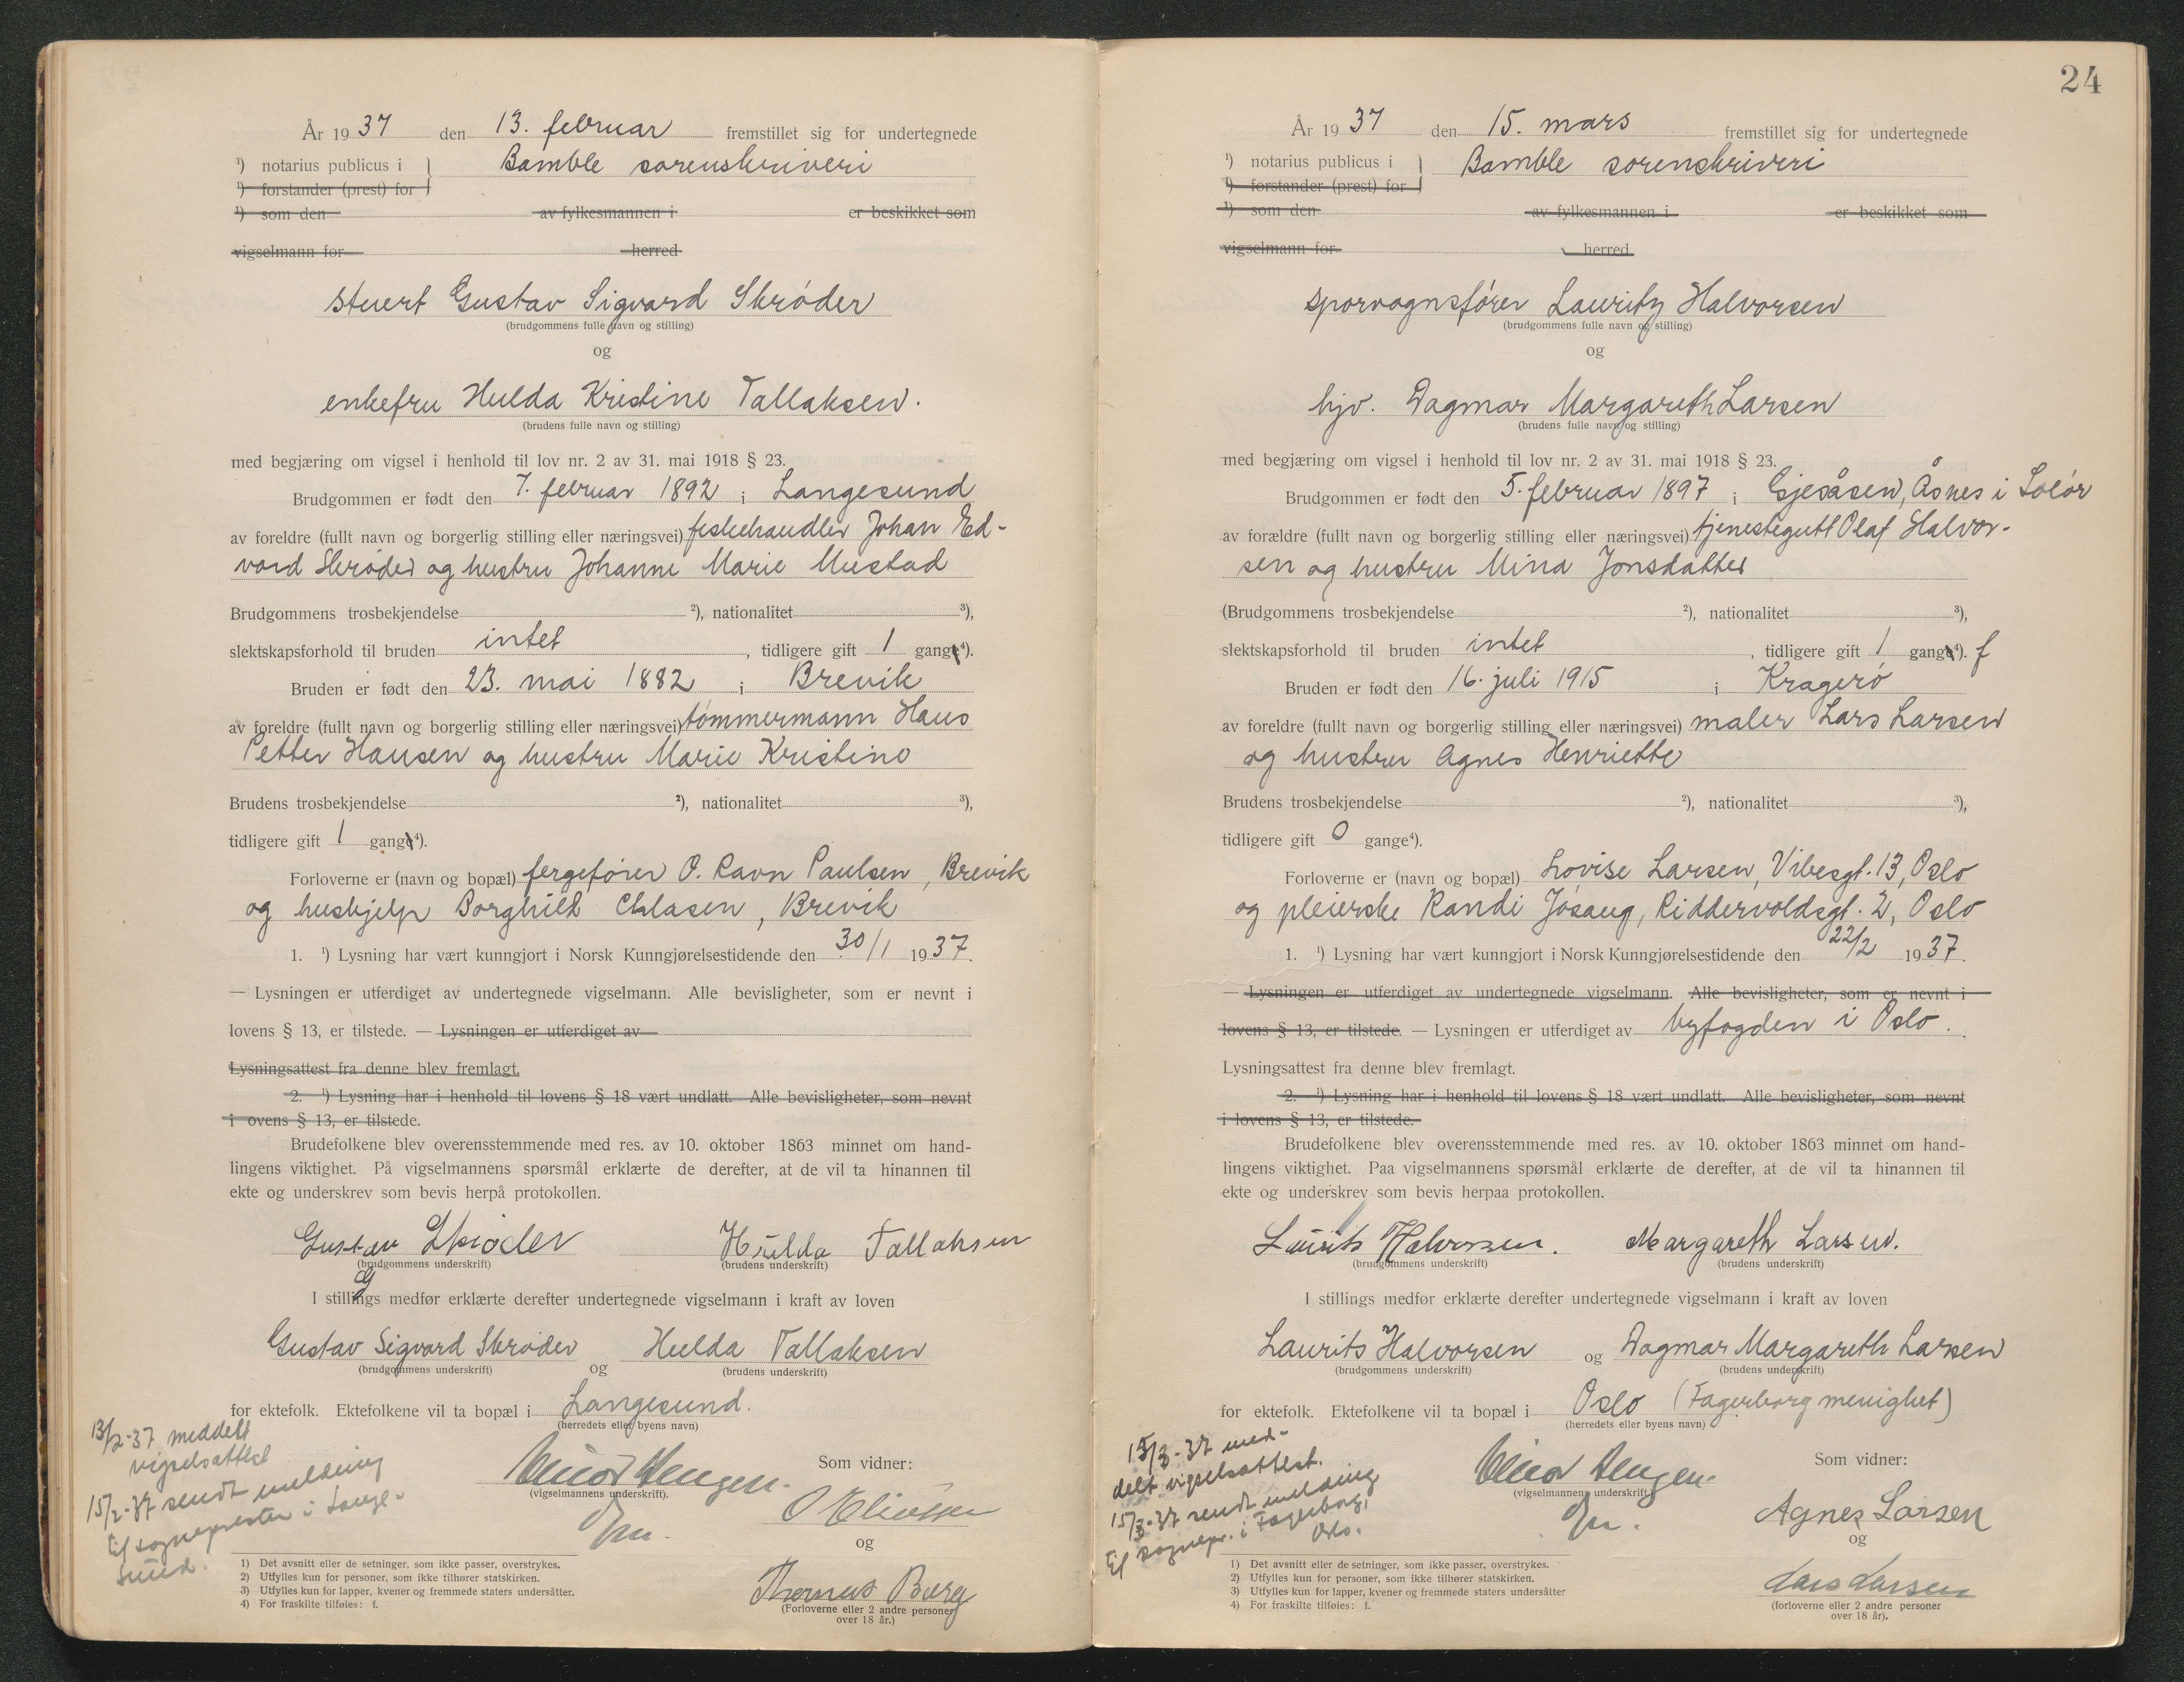 År 1937 den 13. februar fremstillet sig for undertegnede
¹) notarius publicus i } Bamble sorenskriveri
¹) forstander (prest) for
¹) som den av fylkesmannen i er beskikket som
vigselmann for herred
stuert Gustav Sigvard Skrøder
(brudgommens fulle navn og stilling)
og
enkefru Hulda Kristine Tallaksen.
(brudens fulle navn og stilling)
med begjæring om vigsel i henhold til lov nr. 2 av 31. mai 1918 § 23.
Brudgommen er født den 7. februar 1892 i Langesund
av foreldre (fullt navn og borgerlig stilling eller næringsvei) fiskehandler Johan Ed-
vard Skrøder og hustru Johanne Marie Mustad
Brudgommens trosbekjendelse ²), nationalitet ³),
slektskapsforhold til bruden intet, tidligere gift 1 gange⁴).
Bruden er født den 23. mai 1882 i Brevik
av foreldre (fullt navn og borgerlig stilling eller næringsvei) tømmermann Hans
Petter Hansen og hustru Marie Kristine
Brudens trosbekjendelse ²), nationalitet ³),
tidligere gift 1 gange⁴).
Forloverne er (navn og bopæl) fergefører O. Ravn Paulsen, Brevik
og hushjelp Borghild Clasen, Brevik
1. ¹) Lysning har vært kunngjort i Norsk Kunngjørelsestidende den 30/1 1937.
— Lysningen er utferdiget av undertegnede vigselmann. Alle bevisligheter, som er nevnt i
lovens § 13, er tilstede. — Lysningen er utferdiget av
Lysningsattest fra denne blev fremlagt.
2. ¹) Lysning har i henhold til lovens § 18 vært undlatt. Alle bevisligheter, som nevnt
i ovens § 13, er tilstede.
Brudefolkene blev overensstemmende med res. av 10. oktober 1863 minnet om hand-
lingens viktighet. På vigselmannens spørsmål erklærte de derefter, at de vil ta hinannen til
ekte og underskrev som bevis herpå protokollen.
Gustav Skrøder Hulda Tallaksen
(brudgommens underskrift) (brudens underskrift)
I stillings medfør erklærte derefter undertegnede vigselmann i kraft av loven
Gustav Sigvard Skrøder og Hulda Tallaksen
(brudgommens underskrift) (brudens underskrift)
for ektefolk. Ektefolkene vil ta bopæl i Langesund.
(herredets eller byens navn)
13/2-37 meddelt
vigselsattest
15/2-37 sendt melding
til sognepresten i Lange-
sund.
Som vidner:
(vigselmannens underskrift).
og
Thomas Berg
(Forloverne eller 2 andre personer
over 18 år.)
1) Det avsnitt eller de setninger, som ikke passer, overstrykes.
2) Utfylles kun for personer, som ikke tilhører statskirken.
3) Utfylles kun for lapper, kvener og fremmede staters undersåtter.
4) For fraskilte tilføies: f.
24
År 1937 den 15. mars fremstillet sig for undertegnede
¹) notarius publicus i } Bamble sorenskriveri
¹) forstander (prest) for
¹) som den av fylkesmannen i er beskikket som
vigselmann for herred
sporvognsfører Lauritz Halvorsen
(brudgommens fulle navn og stilling)
og
hjv. Dagmar Margareth Larsen
(brudens fulle navn og stilling)
med begjæring om vigsel i henhold til lov nr. 2 av 31. mai 1918 § 23.
Brudgommen er født den 5. februar 1897 i Gjesåsen, Åsnes i Solør
av forældre (fullt navn og borgerlig stilling eller næringsvei) tjenestegutt Olaf Halvor-
sen og hustru Mina Jonsdatter
(Brudgommens trosbekjendelse ²), nationalitet ³),
slektskapsforhold til bruden intet, tidligere gift 1 gange⁴). f
Bruden er født den 16. juli 1915 i Kragerø
av foreldre (fullt navn og borgerlig stilling eller næringsvei) maler Lars Larsen
og hustru Agnes Henriette
Brudens trosbekjendelse ²), nationalitet ³),
tidligere gift 0 gange⁴).
Forloverne er (navn og bopæl) Lovise Larsen, Vibesgt. 13, Oslo
og pleierske Randi Jøsaug, Riddervoldsgt. 2, Oslo
1. ¹) Lysning har vært kunngjort i Norsk Kunngjørelsestidende den 22/2 1937.
— Lysningen er utferdiget av undertegnede vigselmann. Alle bevisligheter, som er nevnt i
lovens § 13, er tilstede. — Lysningen er utferdiget av byfogden i Oslo.
Lysningsattest fra denne blev fremlagt.
2. ¹) Lysning har i henhold til lovens § 18 vært undlatt. Alle bevisligheter, som nevnt
i lovens § 13, er tilstede.
Brudefolkene blev overensstemmende med res. av 10. oktober 1863 minnet om hand-
lingens viktighet. Paa vigselmannens spørsmål erklærte de derefter, at de vil ta hinannen til
ekte og underskrev som bevis herpaa protokollen.
Laurits Halvorsen. Margareth Larsen.
(brudgommens underskrift) (brudens underskrift)
I stillings medfør erklærte derefter undertegnede vigselmann i kraft av loven
Laurits Halvorsen og Dagmar Margareth Larsen
(brudgommens underskrift) (brudens underskrift)
for ektefolk. Ektefolkene vil ta bopæl i Oslo (Fagerborg menighet)
(herredets eller byens navn)
15/3-37 med-
delt vigselsattest.
15/3-37 sendt melding
til sognepr. i Fagerborg,
Oslo.
Som vidner:
(vigselmannens underskrift)
Agnes Larsen
og
Lars Larsen
(forloverne eller 2 andre personer
over 18 år).
1) Det avsnitt eller de setninger, som ikke passer, overstrykes.
2) Utfylles kun for personer, som ikke tilhører statskirken.
3) Utfylles kun for lapper, kvener og fremmede staters undersåtter
4) For fraskilte tilføies: f.